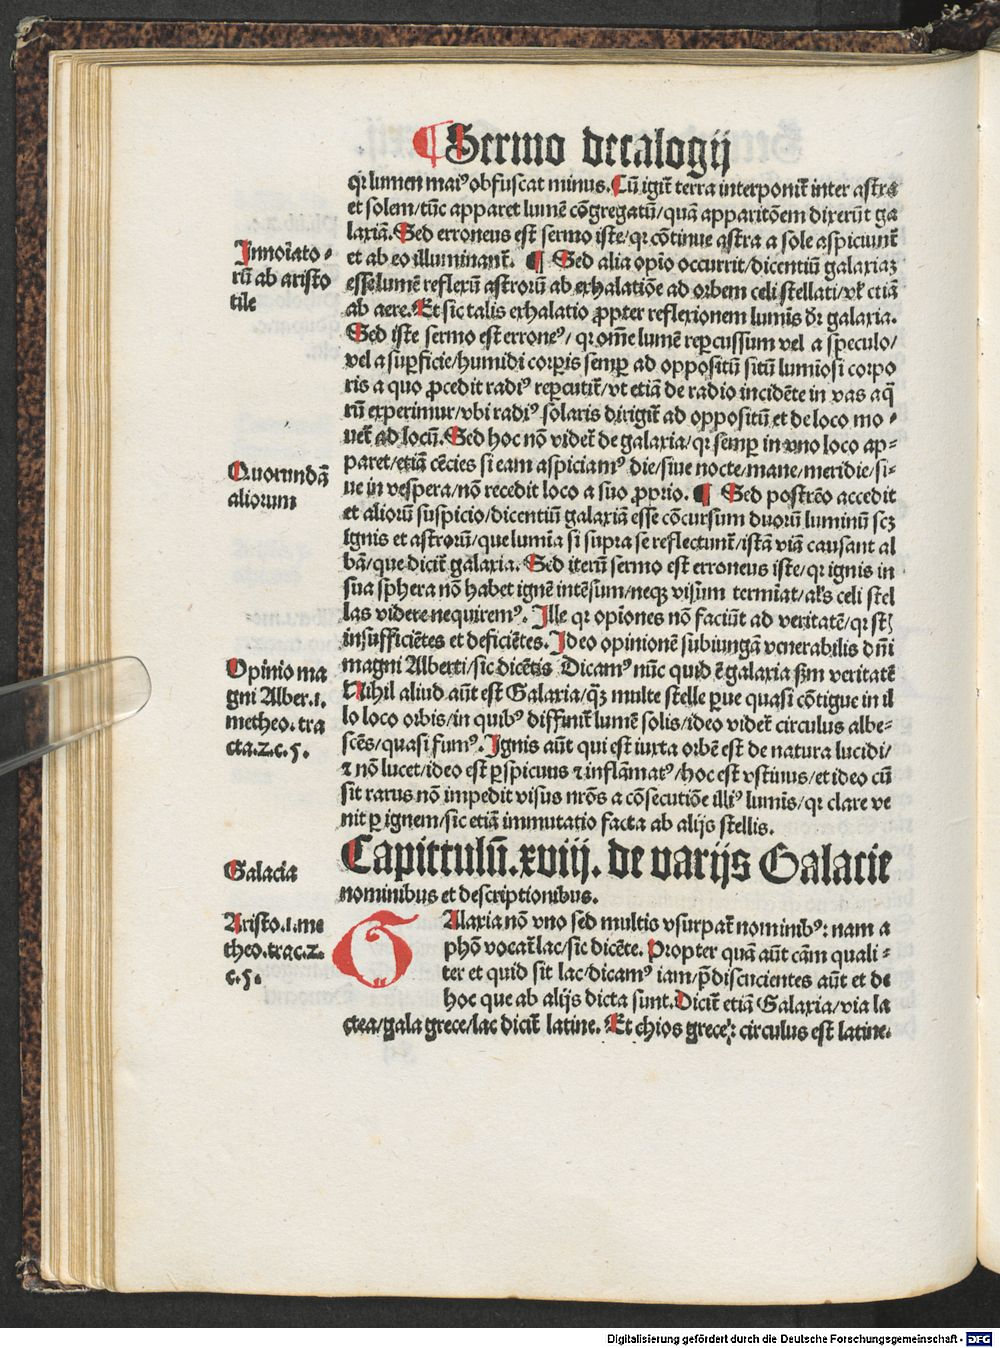 ¶ Sermo decalogij
qꝛ lumen maiꝰ obfuscat minus. Cũ igit̃ terra interponit̃ inter astra
et solem/tũc apparet lumẽ cõgregatũ/quã apparitõem dixerũt ga
laxiã. Sed erroneus est sermo iste/qꝛ cõtinue astra a sole aspiciunt̃
et ab eo illuminant̃. ¶ Sed alia opio occurrit/dicentiũ galaxiaꝫ
esse lumẽ reflexũ astrorũ ab exhalatiõe ad orbem celi stellati/vl̕ etiã
ab aere. Et sic talis exhalatio ꝓpter reflexionem lumĩs dr̃ galaxia.
Sed iste sermo est erroneꝰ/ qꝛ om̃e lumẽ reꝑcussum vel a speculo/
vel a suꝑficie/humidi corꝑis semꝑ ad oppositũ sitũ lumiõsi corpo
ris a quo ꝓcedit radiꝰ reꝑcutit̃/vt etiã de radio incidẽte in vas aq̃
rũ experimur/vbi radiꝰ solaris dirigit̃ ad oppositũ et de loco mo⸗
uet̃ ad locũ. Sed hoc nõ videt̃ de galaxia/qꝛ semꝑ in vno loco ap⸗
paret/etiã cẽcies si eam aspiciamꝰ die/siue nocte/mane/meridie/si⸗
ue in vespera/nõ recedit loco a suo ꝓprio. ¶ Sed postrẽo accedit
et aliorũ suspicio/dicentiũ galaxiã esse cõcursum duorũ luminũ scꝫ
Ignis et astrorũ/que lumĩa si supra se reflectunt̃/istã viã causant al
bã/que dicit̃ galaxia. Sed iterũ sermo est erroneus iste/qꝛ ignis in
sua sphera nõ habet ignẽ intẽsum/neqꝫ visum termĩat/al̕s celi stel
las videre nequiremꝰ. Ille qꝛ opĩones nõ faciũt ad veritatẽ/qꝛ st̃
insufficiẽtes et deficiẽtes. Ideo opinionẽ subiungã venerabilis dñi
magni Alberti/sic dicẽtis Dicamꝰ nũc quid ẽ galaxia ẜm veritatẽ
Nihil aliud aũt est Galaxia/q̃ꝫ multe stelle ꝑue quasi cõtigue in il
lo loco orbis/in quibꝰ diffinit̃ lumẽ solis/ideo videt̃ circulus albe⸗
scẽs/quasi fumꝰ. Ignis aũt qui est iuxta orbẽ est de natura lucidi/
⁊ nõ lucet/ideo est ꝑspicuus ⁊ inflãmatꝰ/hoc est vstinus/et ideo cũ
sit rarus nõ impedit visus nr̃os a cõsecutiõe illiꝰ lumĩs/qꝛ clare ve
nit ꝑ ignem/sic etiã immutatio facta ab alijs stellis.
Capittulũ.xviij. de varijs Galacie
nominibus et descriptionibus.
GAlaxia nõ vno sed multis vsurpat̃ nominibꝰ: nam a
phõ vocat̃ lac/sic dicẽte. Propter quã aũt cãm quali⸗
ter et quid sit lac/dicamꝰ iam/p̃discucientes aũt et de
hoc que ab alijs dicta sunt. Dicit̃ etiã Galaxia/via la
ctea/gala grece/lac dicit̃ latine. Et chios grece: circulus est latine.
Innoĩato⸗
rũ ab aristo
tile
Quorundã
aliorum
Opinio ma
gni Alber.i.
metheo. tra
cta.2.c.5.
Galacia
Aristo.i.me
theo.trac.2.
c.5.
Digitalisierung gefördert durch die Deutsche Forschungsgemeinschaft - DFG